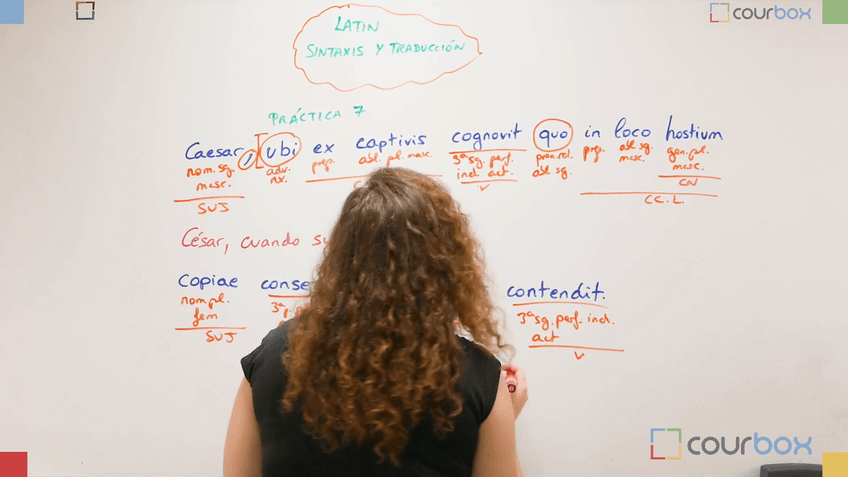 courbox
LATIN
SINTAXIS Y TRADUCCIÓN
PRÁCTICA 7
Caesar, ubi ex captivis cognovit quo in loco hostium
nom. sg. adv. prep. abl. pl. masc. 3ª sg. perf. pron. rel. prep. abl. sg. gen. pl.
masc. nx. ind. act. abl. sg. masc. masc.
SUJ V CN
CC.L.
César, cuando
Copiae contendit.
nom. pl. 3ª 3ª sg. perf. ind.
fem act
SUJ V
courbox